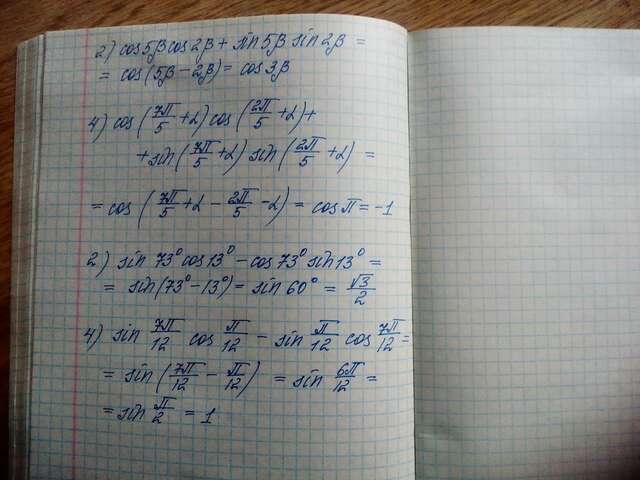 2) cos5β cos2β + sin5β sin2β =
= cos(5β - 2β) = cos3β
4) cos(7π/5 + α) cos(2π/5 + α) +
+ sin(7π/5 + α) sin(2π/5 + α) =
= cos(7π/5 + α - 2π/5 - α) = cosπ = -1
2) sin 73° cos13° - cos73° sin13° =
= sin(73° - 13°) = sin60° = √3/2
4) sin 7π/12 cos π/12 - sin π/12 cos 7π/12 =
= sin(7π/12 - π/12) = sin 6π/12 =
= sin π/2 = 1